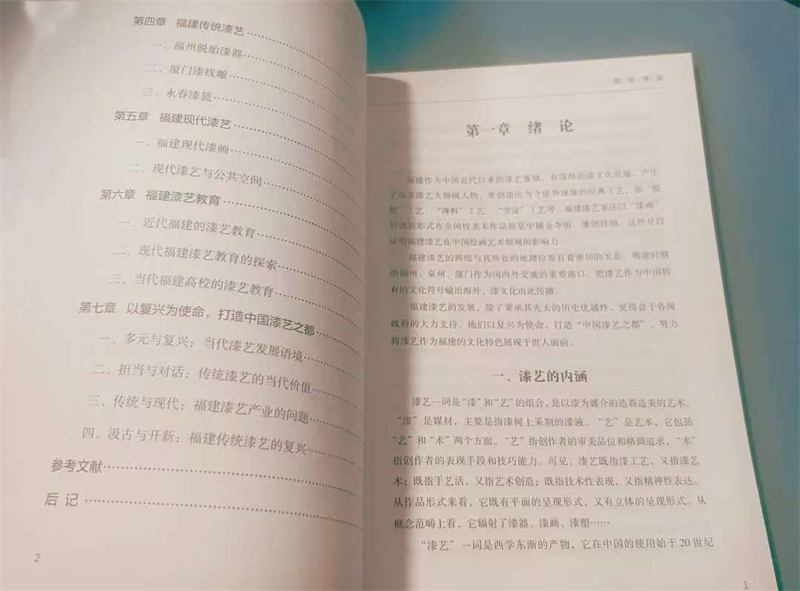 第四章 福建传统漆艺
一、福州脱胎漆器
二、厦门漆线雕
三、永春漆篮
第五章 福建现代漆艺
一、福建现代漆画
二、现代漆艺与公共空间
第六章 福建漆艺教育
一、近代福建的漆艺教育
二、现代福建漆艺教育的探索
三、当代福建高校的漆艺教育
第七章 以复兴为使命，打造中国漆艺之都
一、多元与复兴：当代漆艺发展语境
二、担当与对话：传统漆艺的当代价值
三、传统与现代：福建漆艺产业的问题
四、汲古与开新：福建传统漆艺的复兴
参考文献
后 记
2
第一章 绪 论
福建作为中国近代以来的漆艺重镇，有深厚的漆文化底蕴，产生
了众多漆艺大师级人物，更创造出当今世界顶级的经典工艺，如“脱
胎”工艺、“薄料”工艺、 工艺等。福建漆艺家还以“漆画”
的创新形式在全国性美术作品展览中摘金夺银，屡创佳绩，这些足以
证明福建漆艺在中国绘画艺术领域的影响力。
福建漆艺的辉煌与其所处的地理位置有着密切的关系。明清时期
的福州、泉州、厦门作为国内外交流的重要港口，把漆艺作为中国特
有的文化符号输出海外，漆文化由此传播。
福建漆艺的发展，除了秉承其先天的历史优越性，更得益于各级
政府的大力支持。他们以复兴为使命，打造“中国漆艺之都”，努力
将漆艺作为福建的文化特色展现于世人面前。
一、漆艺的内涵
漆艺一词是“漆”和“艺”的组合，是以漆为媒介的造器造美的艺术。
“漆”是媒材，主要是指漆树上采割的漆液。“艺”是艺术，它包括
“艺”和“术”两个方面。“艺”指创作者的审美品位和格调追求，“术”
指创作者的表现手段和技巧能力。可见，漆艺既指漆工艺，又指漆艺
术；既指手艺活，又指艺术创造；既指技术性表现，又指精神性表达。
从作品形式来看，它既有平面的呈现形式，又有立体的呈现形式。从
概念范畴上看，它辐射了漆器、漆画、漆塑……
“漆艺”一词是西学东渐的产物，它在中国的使用始于20世纪
1